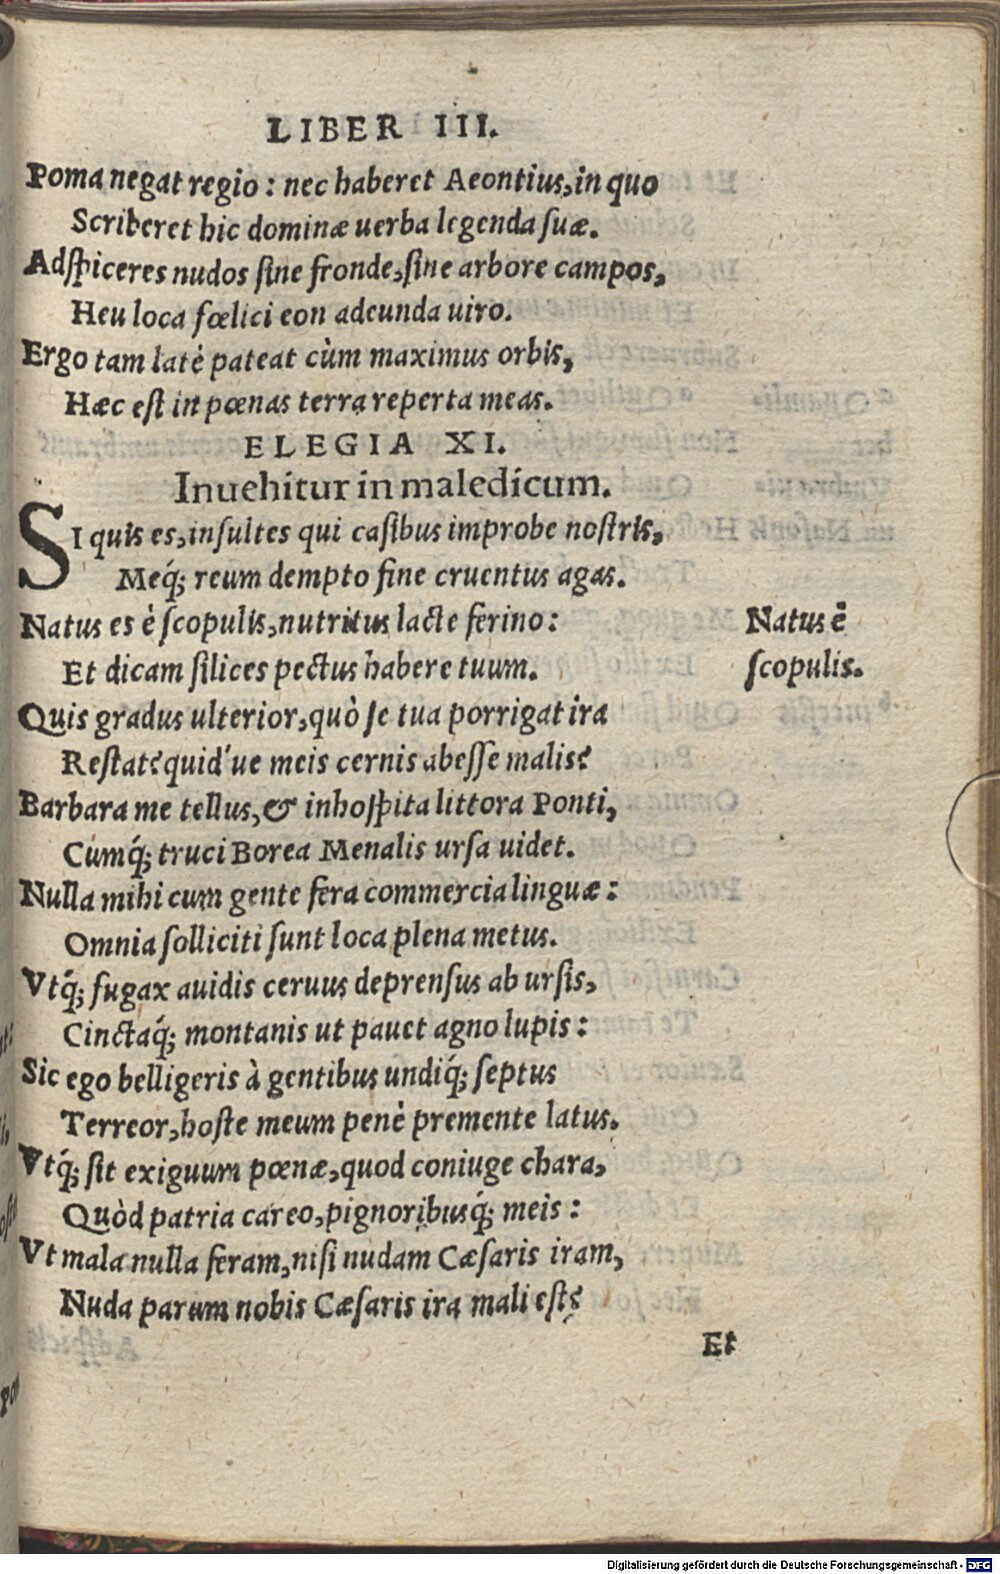 LIBER III.
Poma negat regio: nec haberet Aeontius, in quo
Scriberet hic dominæ uerba legenda suæ.
Adſpiceres nudos ſine fronde, ſine arbore campos,
Heu loca fœlici eon adeunda uiro.
Ergo tam latè pateat cùm maximus orbis,
Hæc eſt in pœnas terra reperta meas.
ELEGIA XI.
Inuehitur in maledicum.
SI quis es, inſultes qui caſibus improbe noſtris,
Meq́; reum dempto fine cruentus agas.
Natus es è ſcopulis, nutritus lacte ferino:
Et dicam ſilices pectus habere tuum.
Quis gradus ulterior, quò ſe tua porrigat ira
Reſtat? quid'ue meis cernis abeſſe malis?
Barbara me tellus, & inhoſpita littora Ponti,
Cumq́; truci Borea Menalis urſa uidet.
Nulla mihi cum gente fera commercia linguæ:
Omnia ſolliciti ſunt loca plena metus.
Vtq́; fugax auidis ceruus deprenſus ab urſis,
Cinctaq́; montanis ut pauet agno lupis:
Sic ego belligeris à gentibus undiq́; ſeptus
Terreor, hoſte meum penè premente latus.
Vtq́; ſit exiguum pœnæ, quod coniuge chara,
Quòd patria careo, pignoribusq́; meis:
Vt mala nulla feram, niſi nudam Cæſaris iram,
Nuda parum nobis Cæſaris ira mali eſt?
Et
Natus è
ſcopulis.
Digitalisierung gefördert durch die Deutsche Forschungsgemeinschaft - DFG